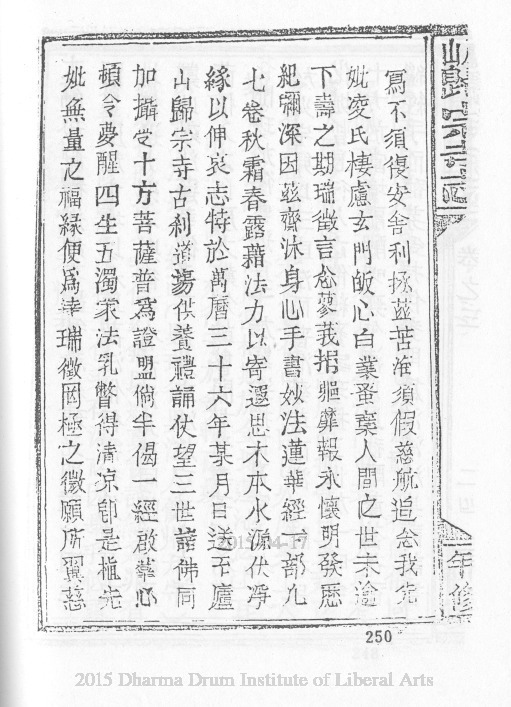 冩不須復安舍利拯茲苦准須假慈航追念我先
妣凌氏棲慮玄門皈心白業蚤棄人間之世未逾
下壽之期瑞徵言念蓼莪捐軀靡報永懷明發歷
紀彌深因茲齋沐身心手書妙法蓮華經一部凡
七卷秋霜春露藉法力以寄遐思木本水源仗淨
緣以伸哀志特於萬曆三十六年某月日送至廬
山歸宗寺古刹道塲供養禮誦伏望三世諸佛同
加攝受十方菩薩普爲證盟倘半偈一經啟羣心
頓令夢醒四生五濁衆法乳瞥得清凉卽是植先
妣無量之福緣便爲達瑞徵罔極之微願所翼慈
年修
250
2015-04-17
2015 Dharma Drum Institute of Liberal Arts